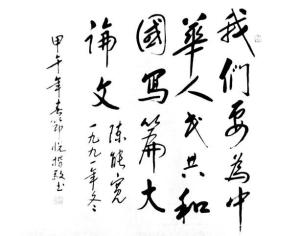 我们要為中
華人民共和
國寫篇大
論文
陈能寬
一九九一年冬
甲午年春節